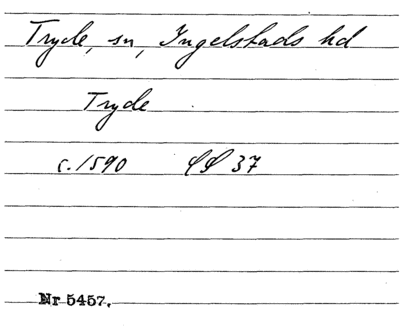 Tryde, sn, Ingelstads hd
Tryde
c. 1590 37
Nr 5457.